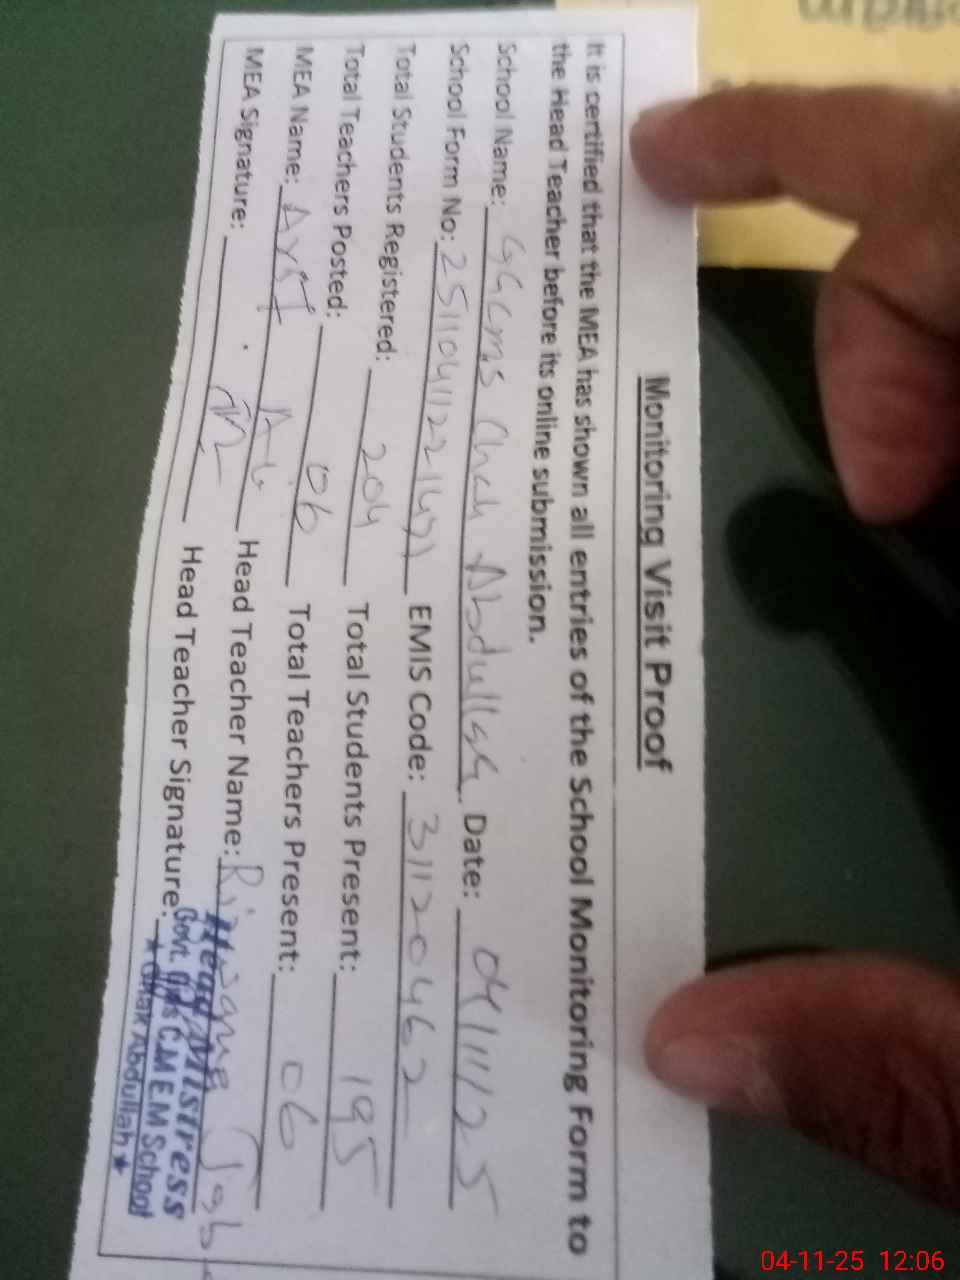 Monitoring Visit Proof
It is certified that the MEA has shown all entries of the School Monitoring Form to
the Head Teacher before its online submission.
School Name: GGCMS Chak Abdullah Date: 04/11/25
School Form No: EMIS Code: 31120462
Total Students Registered: 204 Total Students Present: 195
Total Teachers Posted: 06 Total Teachers Present: 06
MEA Name: Head Teacher Name:
MEA Signature: Head Teacher Signature:
Head Mistress
Govt. C.M E.M School
★ Chak Abdullah ★
04-11-25 12:06